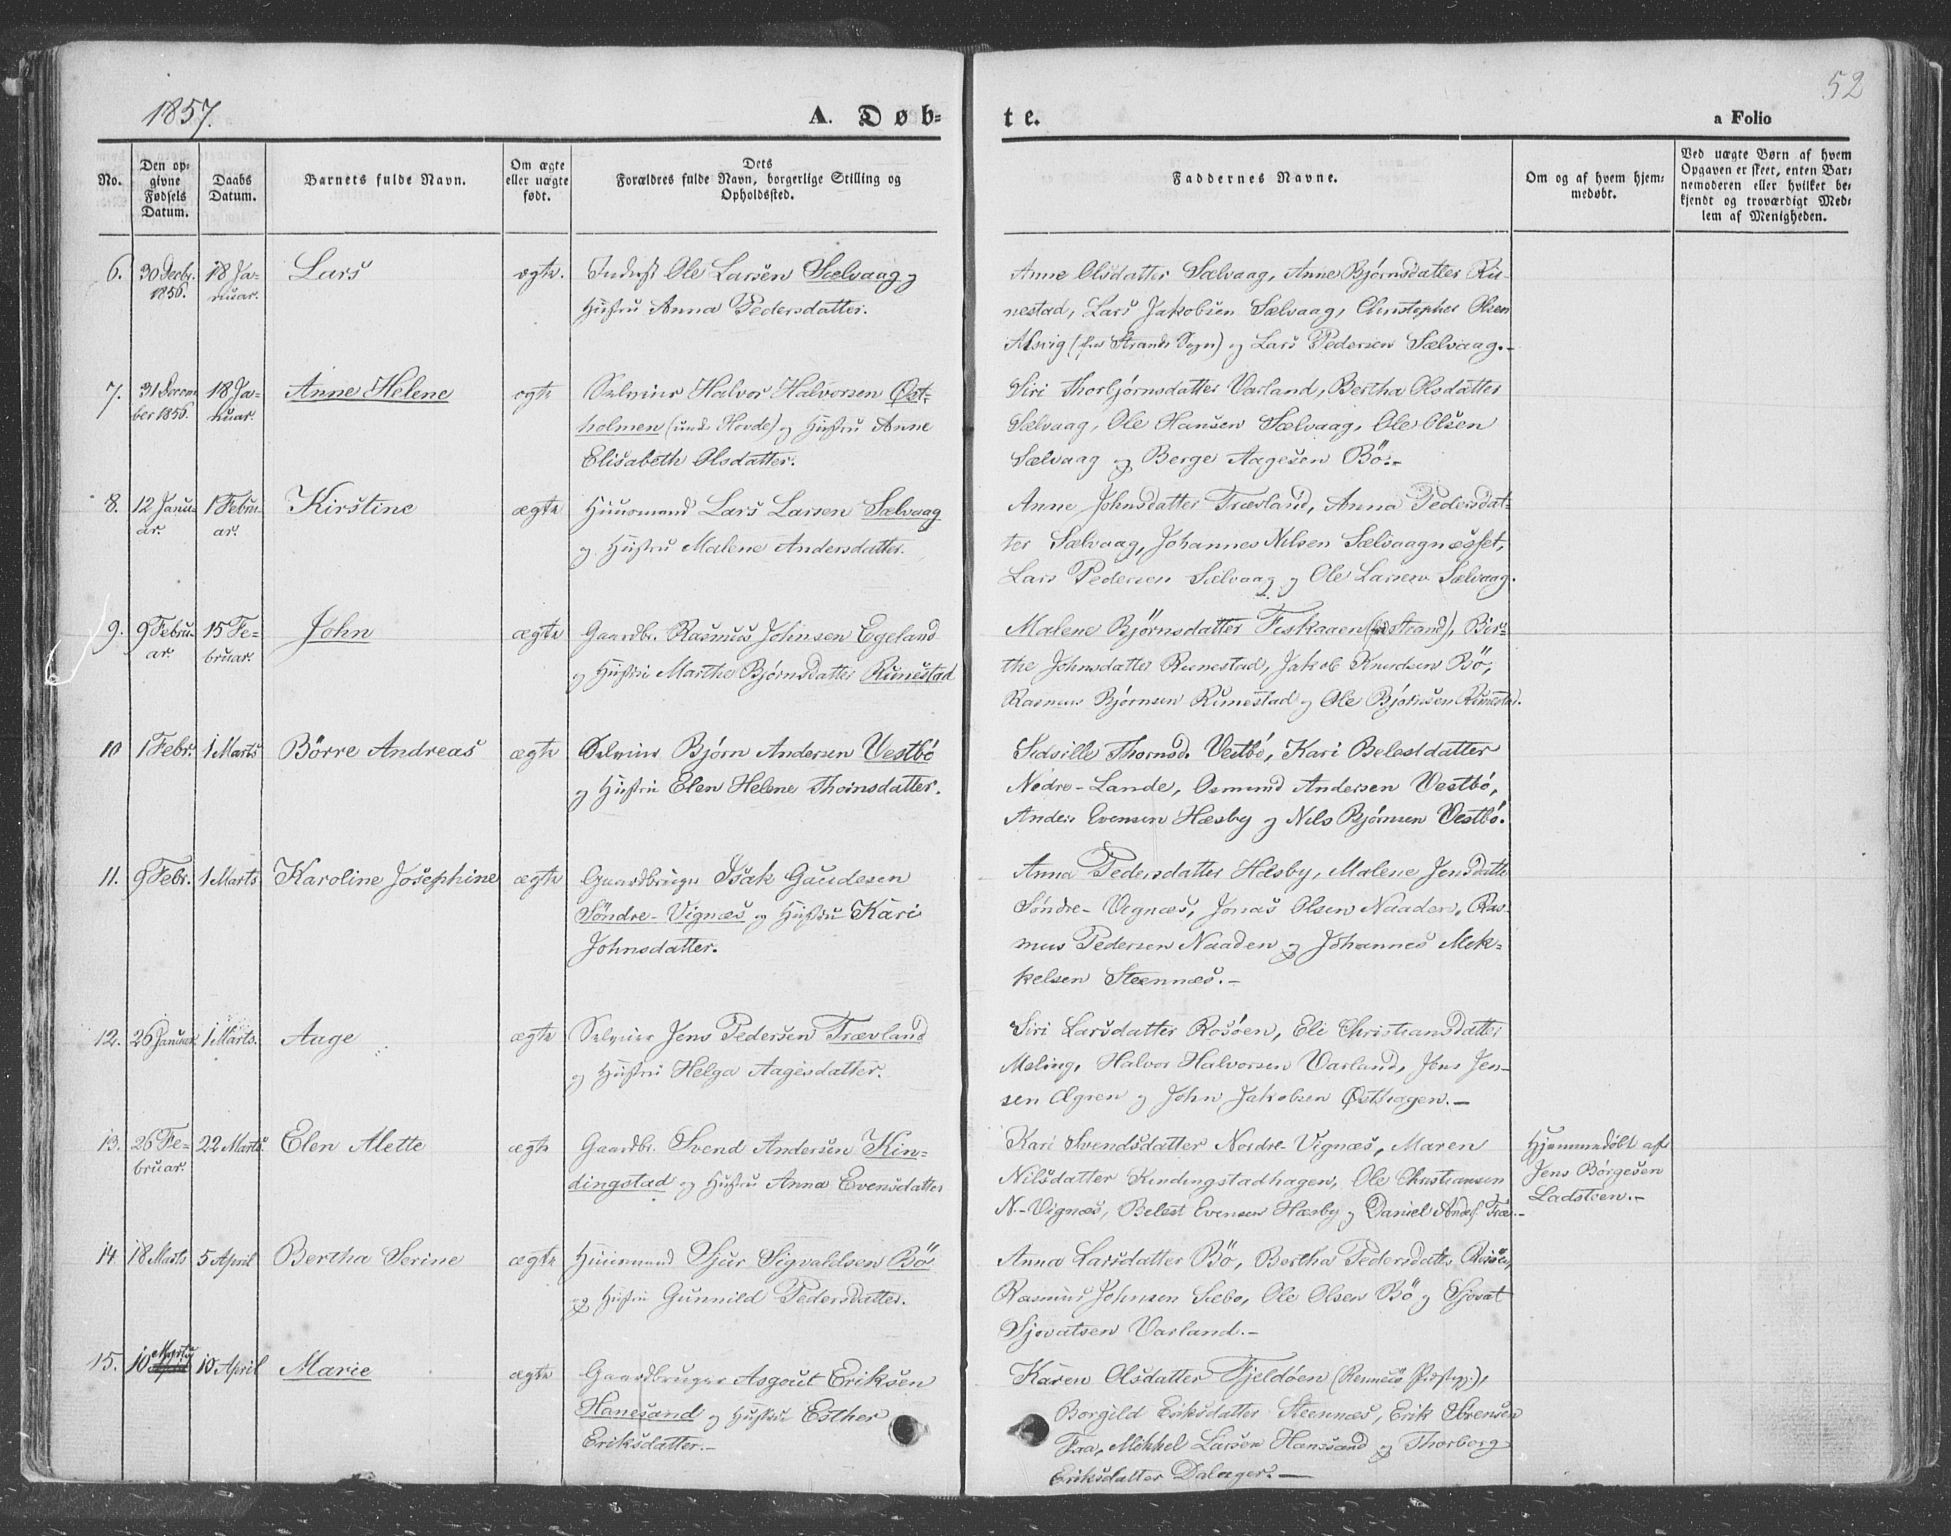 1857.
A. Døb-
te.
a Folio
52
No.
Den op-
givne
Fødsels
Datum.
Daabs
Datum.
Barnets fulde Navn.
Om ægte
eller uægte
født.
Dets
Forældres fulde Navn, borgerlige Stilling og
Opholdssted.
Faddernes Navne.
Om og af hvem hjem-
medøbt.
Ved uægte Børn af hvem
Opgaven er skeet, enten Bar-
nemoderen eller hvilket be-
kjendt og troværdigt Med-
lem af Menigheden.
6. 30 Decbr. 1856. 18 Ja-
nuar. Lars ægte. Inderst Ole Larsen Sælvaag og
Hustru Anna Pedersdatter.
Anne Olsdatter Sælvaag, Anne Bjørnsdatter Ru-
nestad, Lars Jakobsen Sælvaag, Christopher Olsen
Alsvig (Strands Sogn) og Lars Pedersen Sælvaag.-
7. 31 Decem
ber 1856. 18 Ja-
nuar. Anne Helene ægte Selveier Halvor Halvorsen Øst-
holmen (under Hovde) og Hustru Anne
Elisabeth Olsdatter.
Siri Thorbjørnsdatter Varland, Bertha Olsdatter
Sælvaag, Ole Hansen Sælvaag, Ole Olsen
Sælvaag og Berge Aagesen Bö.-
8. 12 Janu-
ar. 1 Febru-
ar. Kirstine ægte Huusmand Lars Larsen Sælvaag
og Hustru Malene Andersdatter.
Anne Johnsdatter Trævland, Anna Pedersdat-
ter Sælvaag, Johannes Nilsen Sælvaagnesset,
Lars Pedersen Sælvaag og Ole Larsen Sælvaag.
9. 9 Febru-
ar. 15 Fe-
bruar. John ægte Gaardbr. Rasmus Johnsen Egeland
og Hustru Marthe Bjørnsdatter Runestad
Malene Bjørnsdatter Fiskaaen (Strand), Ber-
the Johnsdatter Runestad, Jakob Knudsen Bö,
Rasmus Bjørnsen Runestad og Ole Bjørnsen Runestad.
10 1 Febr. 1 Marts Börre Andreas ægte Selveier Bjørn Andersen Vestbö
og Hustru Elen Helene Thornsdatter.
Sidsille Thornsd. Vestbö, Kari Belestdatter
Nedre-Lande, Osmund Andersen Vestbö,
Anders Evensen Hæsby og Nils Bjørnsen Vestbö.
11. 9 Febr. 1 Marts Karoline Josephine ægte Gaardbruger Isak Gaudesen
Söndre-Vignæs og Hustru Kari
Johnsdatter.
Anna Pedersdatter Hæsby, Malene Jensdatter
Söndre-Vignæs, Jonas Olsen Naaden, Ras-
mus Pedersen Naaden og Johannes Mik-
kelsen Steennæs.-
12. 26 Januar 1 Marts. Aage ægte Selveier Jens Pedersen Trævland
og Hustru Helga Aagesdatter.
Siri Larsdatter Rosöen, Eli Christiansdatter
Meling, Halvor Halvorsen Varland, Jens Jen-
sen Ægren og John Jakobsen Østhagen.-
13. 26 Fe-
bruar. 22 Marts. Elen Alette ægte Gaardbr. Svend Andersen Kin-
dingstad og Hustru Anna Evensdatter
Kari Svendsdatter Nordre-Vignæs, Maren
Nilsdatter Kindingstadhagen, Ole Christiansen
N.-Vignæs, Belest Evensen Hæsby og Daniel
Hjemmedöbt af
Jens Börgesen
Ladsteen.-
14 18 Marts 5 April Bertha Serine ægte Huusmand Sjur Sigvaldsen Bö
og Hustru Gunnild Pedersdatter.
Anna Larsdatter Bö, Bertha Pedersdatter
Rasmus Johnsen Sæbø, Ole Olsen Bö og Sjovat
Sjovatsen Varland.-
15. 10 Marts April 10 April Marie ægte Gaardbruger Asgout Eriksen
Hanesand og Hustru Esther
Eriksdatter.-
Karen Olsdatter Fjeldöen (Rennesö Præstegj.),
Borgild Eriksdatter Steennæs, Erik Sörensen
Faa, Mikkel Larsen Hanesand og Thorborg
Eriksdatter Dalager.-